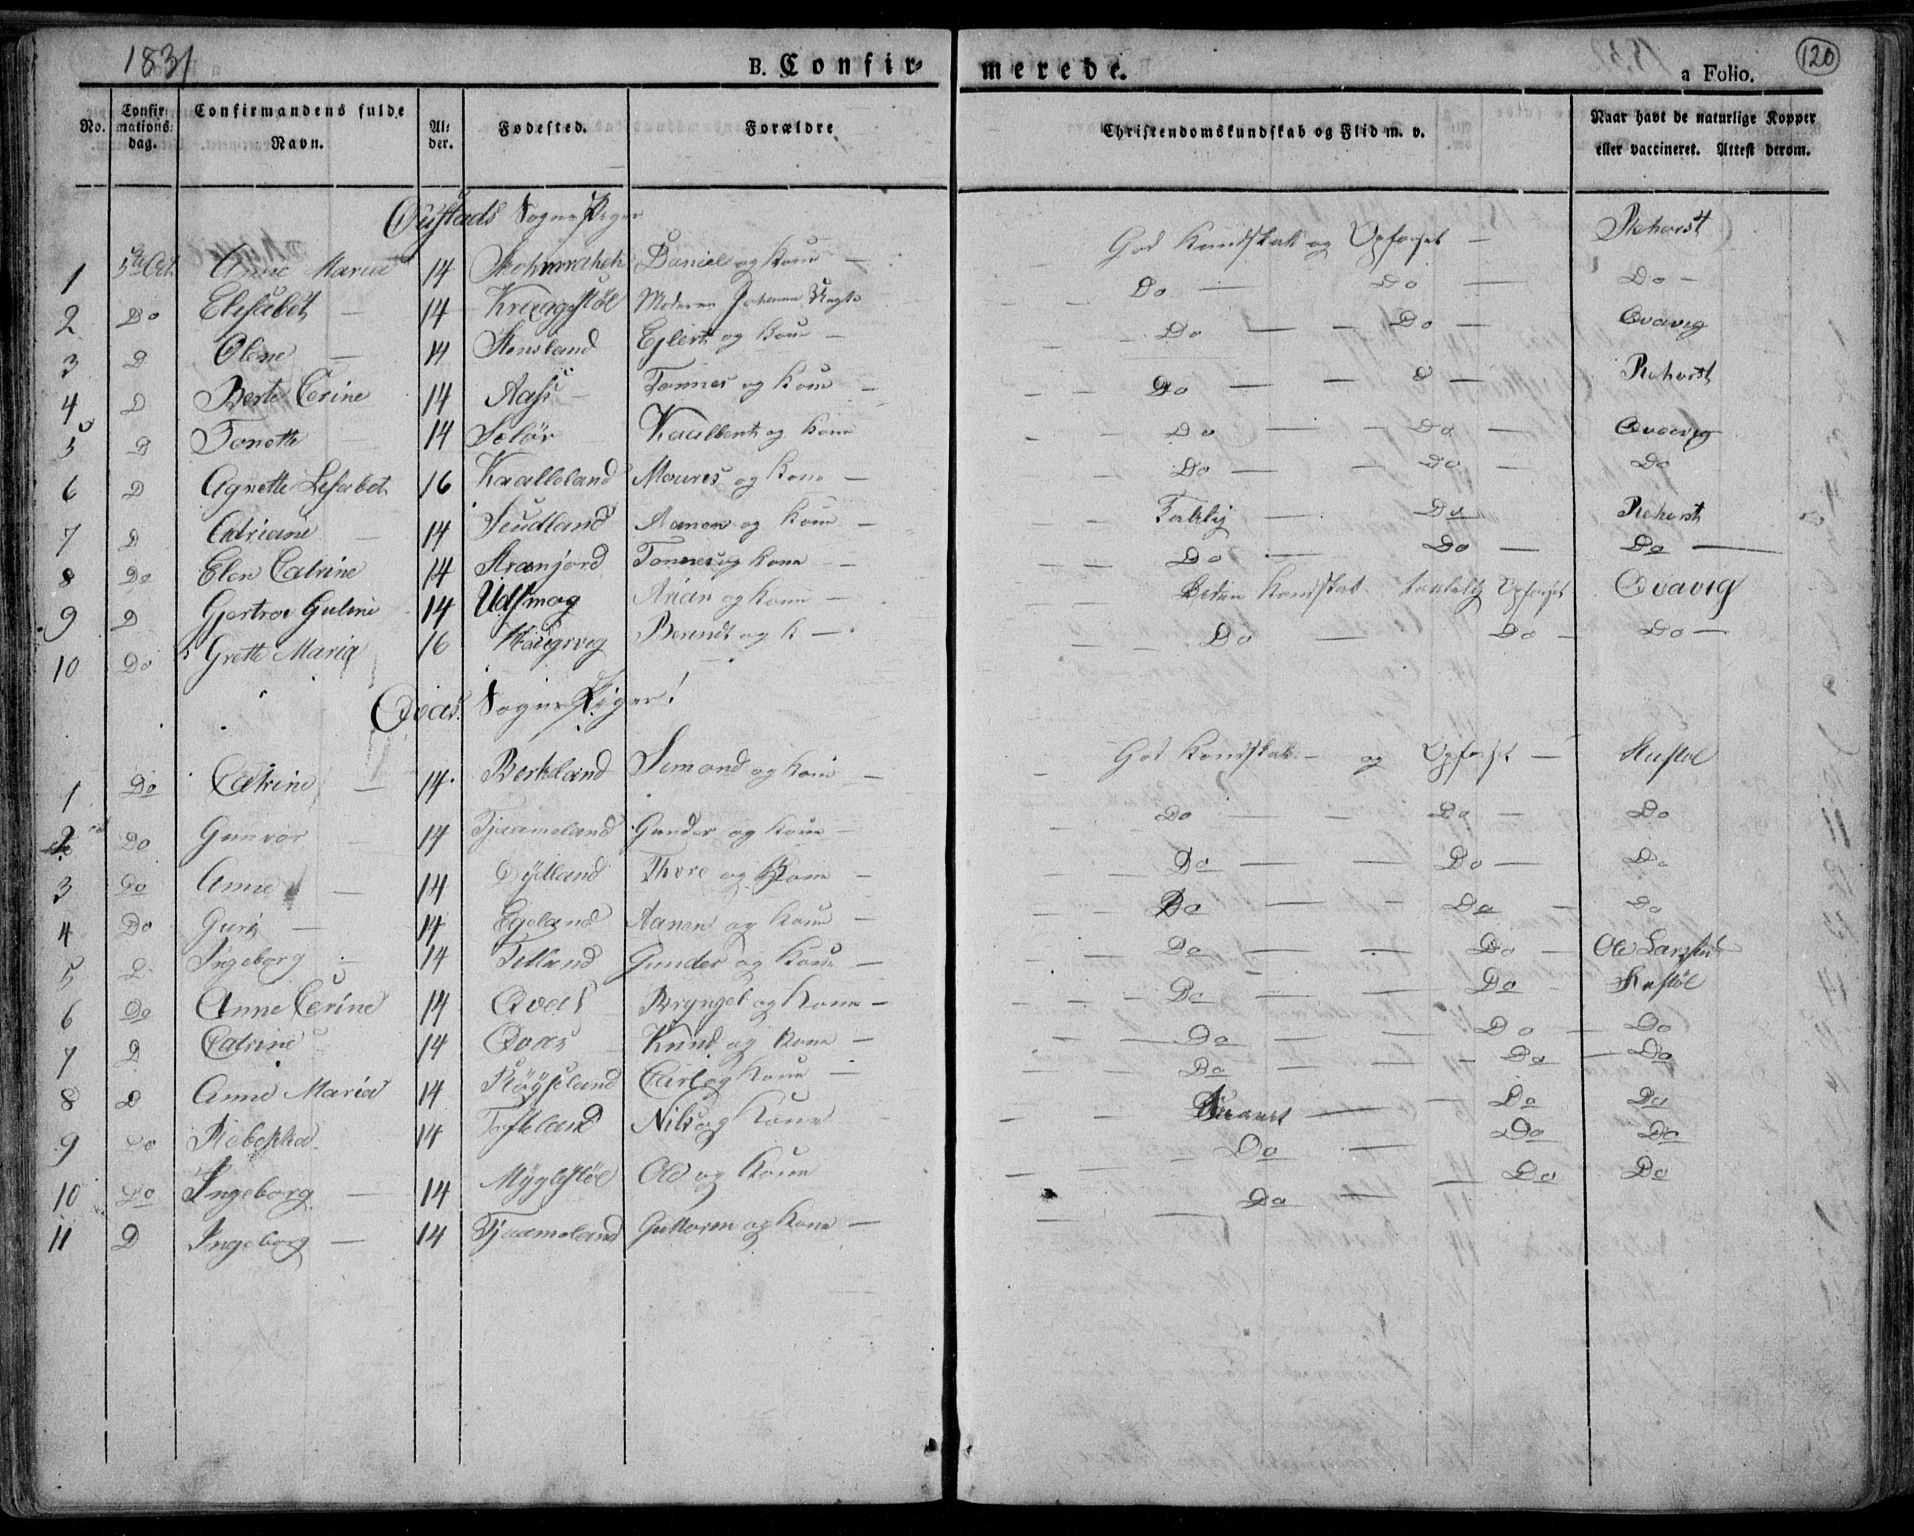 1831
B. Confirmerede.
a Folio.
120
No. Confirmationsdag. Confirmandens fulde Navn. Alder. Fødested. Forældre Christendomskundskab og Flid m. v. Naar havt de naturlige Kopper eller vaccineret. Attest derom.
Øustads Sogns Piger
1 5te Oct. Anne Maria 14 Daniel og Kone — God Kundskab og Opførsel — Rehorst
2 Do Elisabet — 14 Moderen Do Do Do —
3 D Olene — 14 Stensland Eilert og Kone — Do — Do — Qvavig
4 D Berte Cerine 14 Aass Tønnes og Kone — Do — D — Rehorst
5 D Tonette 14 Selør Kaalbent og Kone Do Do — Qvavig
6 D Agnette Lisabet 16 Kaalleland Maures og Kone — Do — Do — Do
7 D Adriane — 14 Seudland Aanon og Kone — Taklig — Do Rehorst
8 Do Elen Catrine 14 Aranjord Tønnes og Kone — Do — Do — Do —
9 D Gjertroe Guline 14 Udsmog Arian og Kone — Kundskab Opførsel Qvavig
10 Do Grette Maria 16 Haugvig Berendt og K — Do — Do — Do —
Qvas Sogns Piger!
1 Do Catrine — 14. Berkeland Semond og Kone — God Kundskab — og Opførsel — Hustøl
2 Do Gunvor — 14 Tjaameland Gunder og Kone — Do Do — Do
3 Do Anne — 14 Eydland Thore og Kone — Do — Do — Do
4 Do Guri — 14 Egeland Aanen og Kone — Do Do — Do
5 D Ingeborg — 14 Felland Gunder og Kone — Do Do — Ole Larsen
6 Do Anne Cerine 14 Qvas Bryngel og Kone — Do Do — Hustøl
7 D Catrine 14 Qvas Knud og Kone — Do Do — Do
8 D Anne Maria 14 Røyseland Carl og Kone — Do Do — Do
9 Do Rebekka 14 Tofteland Nils og Kone — Do Do
10 Do Ingeborg — 14 Myglestøl Ole og Kone Do — Do Do
11 D Ingeborg — 14 Tjaameland Guttorm og Kone — Do Do Do